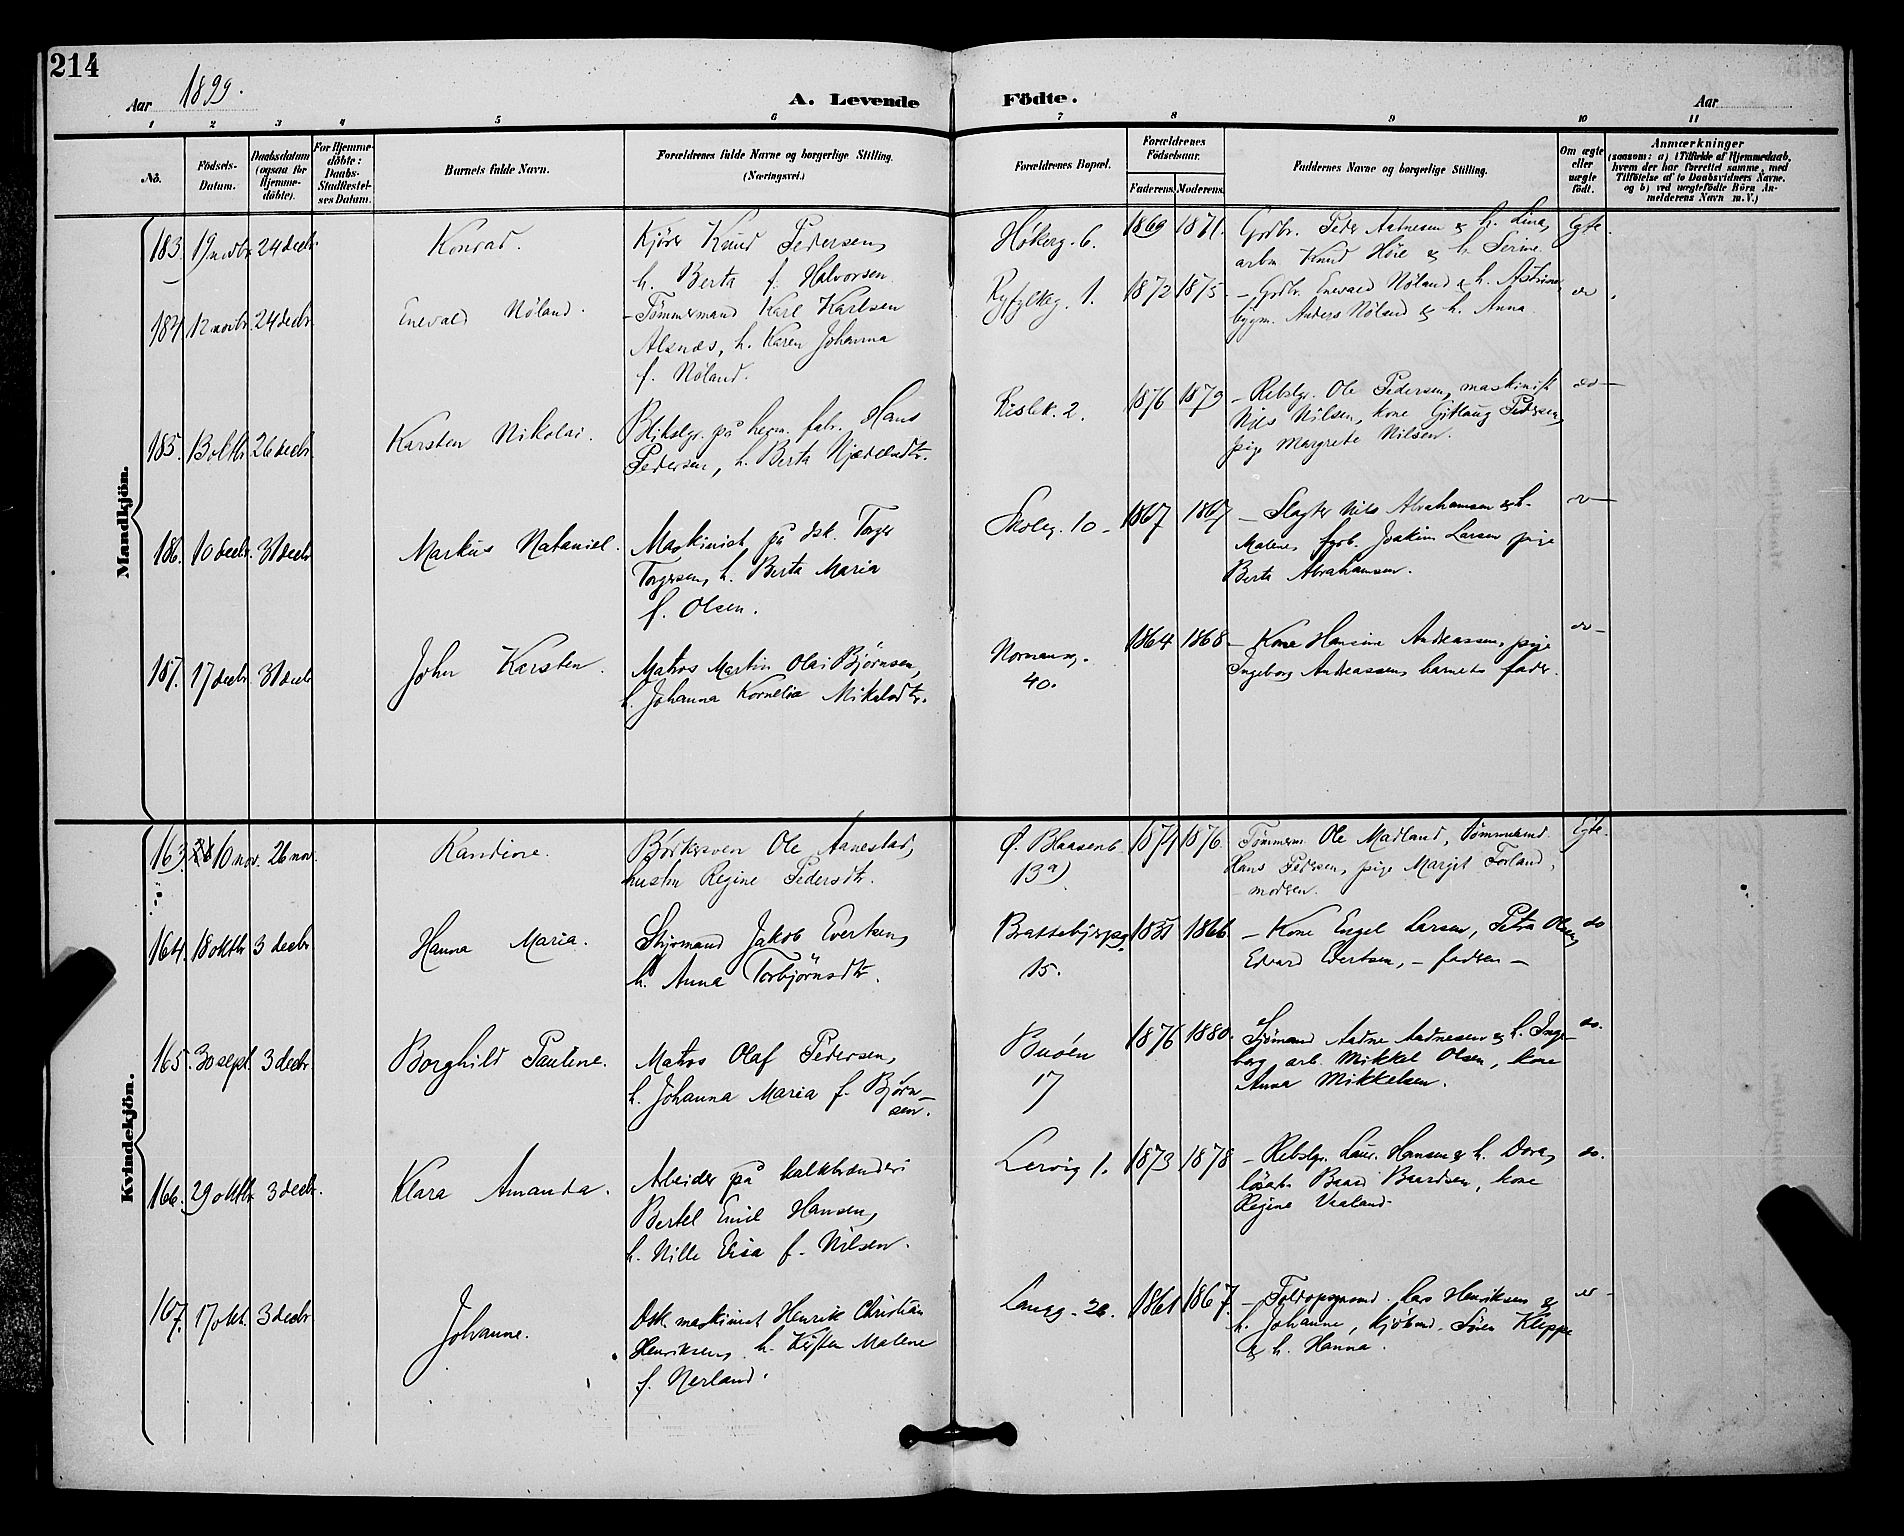 214
Aar 1899.
A. Levende Födte.
Aar
1 2 3 4 5 6 7 8 9 10 11
No.
Födsels-Datum.
Daabsdatum (ogsaa for Hjemme-döbte).
For Hjemme-döbte: Daabs-Stadfæstel-ses Datum.
Barnets fulde Navn.
Forældrenes fulde Navne og borgerlige Stilling.
(Næringsvei.)
Forældrenes Bopæl.
Forældrenes Födselsaar.
Faderens. Moderens.
Faddernes Navne og borgerlige Stilling.
Om ægte eller uægte födt.
Anmærkninger
(saasom: a) i Tilfælde af Hjemmedaab, hvem der har forrettet samme, med Tilföielse af to Daabsvidners Navne, og b) ved uægtefödte Börn An-melderens Navn m. V.)
Mandkjön.
183. 19 novbr. 24 decbr. Konrad. Kjörer Knud Pedersen,
h. Berta f. Halvorsen
Hökerg. 6. 1869 1871. Grdbr. Peder Aatnesen & h. Lina,
arbm Knud Höie & h. Serine
Egte.
184. 12 novbr. 24 decbr. Enevald Nöland. Tömmermand Karl Karlsen
Alsnæs, h. Karen Johanna
f. Nöland.
Ryfylkeg. 1. 1872 1875 – Grdbr. Enevald Nöland & h. Astrine,
bygm. Anders Nöland & h. Anna
do
185. 13 oktbr 26 decbr. Karsten Nikolai. Blikslgr. på herm. fabr. Hans
Pedersen, h. Berta Njædelsdtr.
2. 1876 1879 – Rebslgr. Ole Pedersen, maskinist
Nils Nilsen, kone Gjtlaug Pedersen,
pige Margrete Nilsen.
do –
186. 10 decbr. 31 decbr Markus Nataniel. Maskinist på dsk. Torger
Torgersen, h. Berta Maria
f. Olsen.
Skoleg. 10 – 1867 1867 – Slagter Nils Abrahamsen & h.
Malene, Joakim Larsen pige
Berta Abrahamsen.
do –
187. 17 decbr. 31 decbr John Karsten. Matros Martin Olai Björnsen,
h. Johanna Kornelia Mikalsdtr.
Normansg.
40.
1864 1868 – Kone Hansine Andreassen, pige
Ingeborg Andreassen, barnets fader.
do –
Kvindekjön.
163. 10 nov. 26 nov. Randine. Börkersven Ole Aanestad,
hustru Regine Pedersdtr.
Ø. Blaasenb.
13 a).
1874 1876 Tömmerm. Ole Madland, Tömmermd.
Hans Pedersen, pige Marget Forland,
– moderen.
Egte.
164. 18 oktbr 3 decbr Hanna Maria. Styrmand Jakob Evertsen,
h. Anna Torbjörnsdtr.
15. 1866. – Kone Engel Larsen, Petra Olsen,
Edvard Evertsen, – faderen –
do
165. 30 sept. 3 decbr. Borghild Pauline. Matros Olaf Pedersen,
h. Johanna Maria f. Björn-
sen.
Buöen
17
1876 1880. Sjömand Aadne Aadnesen & h. Inge-
borg, arb. Mikkel Olsen, kone
Anna Mikkelsen.
do.
166. 29 oktbr. 3 decbr. Klara Amanda. Arbeider på kalkbrænderi
Bertel Emil Hansen,
h. Nille Elisa f. Nilsen.
Lervig 1. 1873 1878 – Rebslgr. Laur. Hansen & h. Dora,
Baard Baardsen, kone
Regine Vaaland.
do.
167. 17 okt. 3 decbr Johanne. Dsk. maskinist Henrik Christian
Henriksen, h. Malene
f. Nerland.
Langg. 26 1861 1867. – Toldopsynsmd. Lars Henriksen &
h. Johanne, kjöbmd. Sören Kleppe
& h. Hanna.
do –